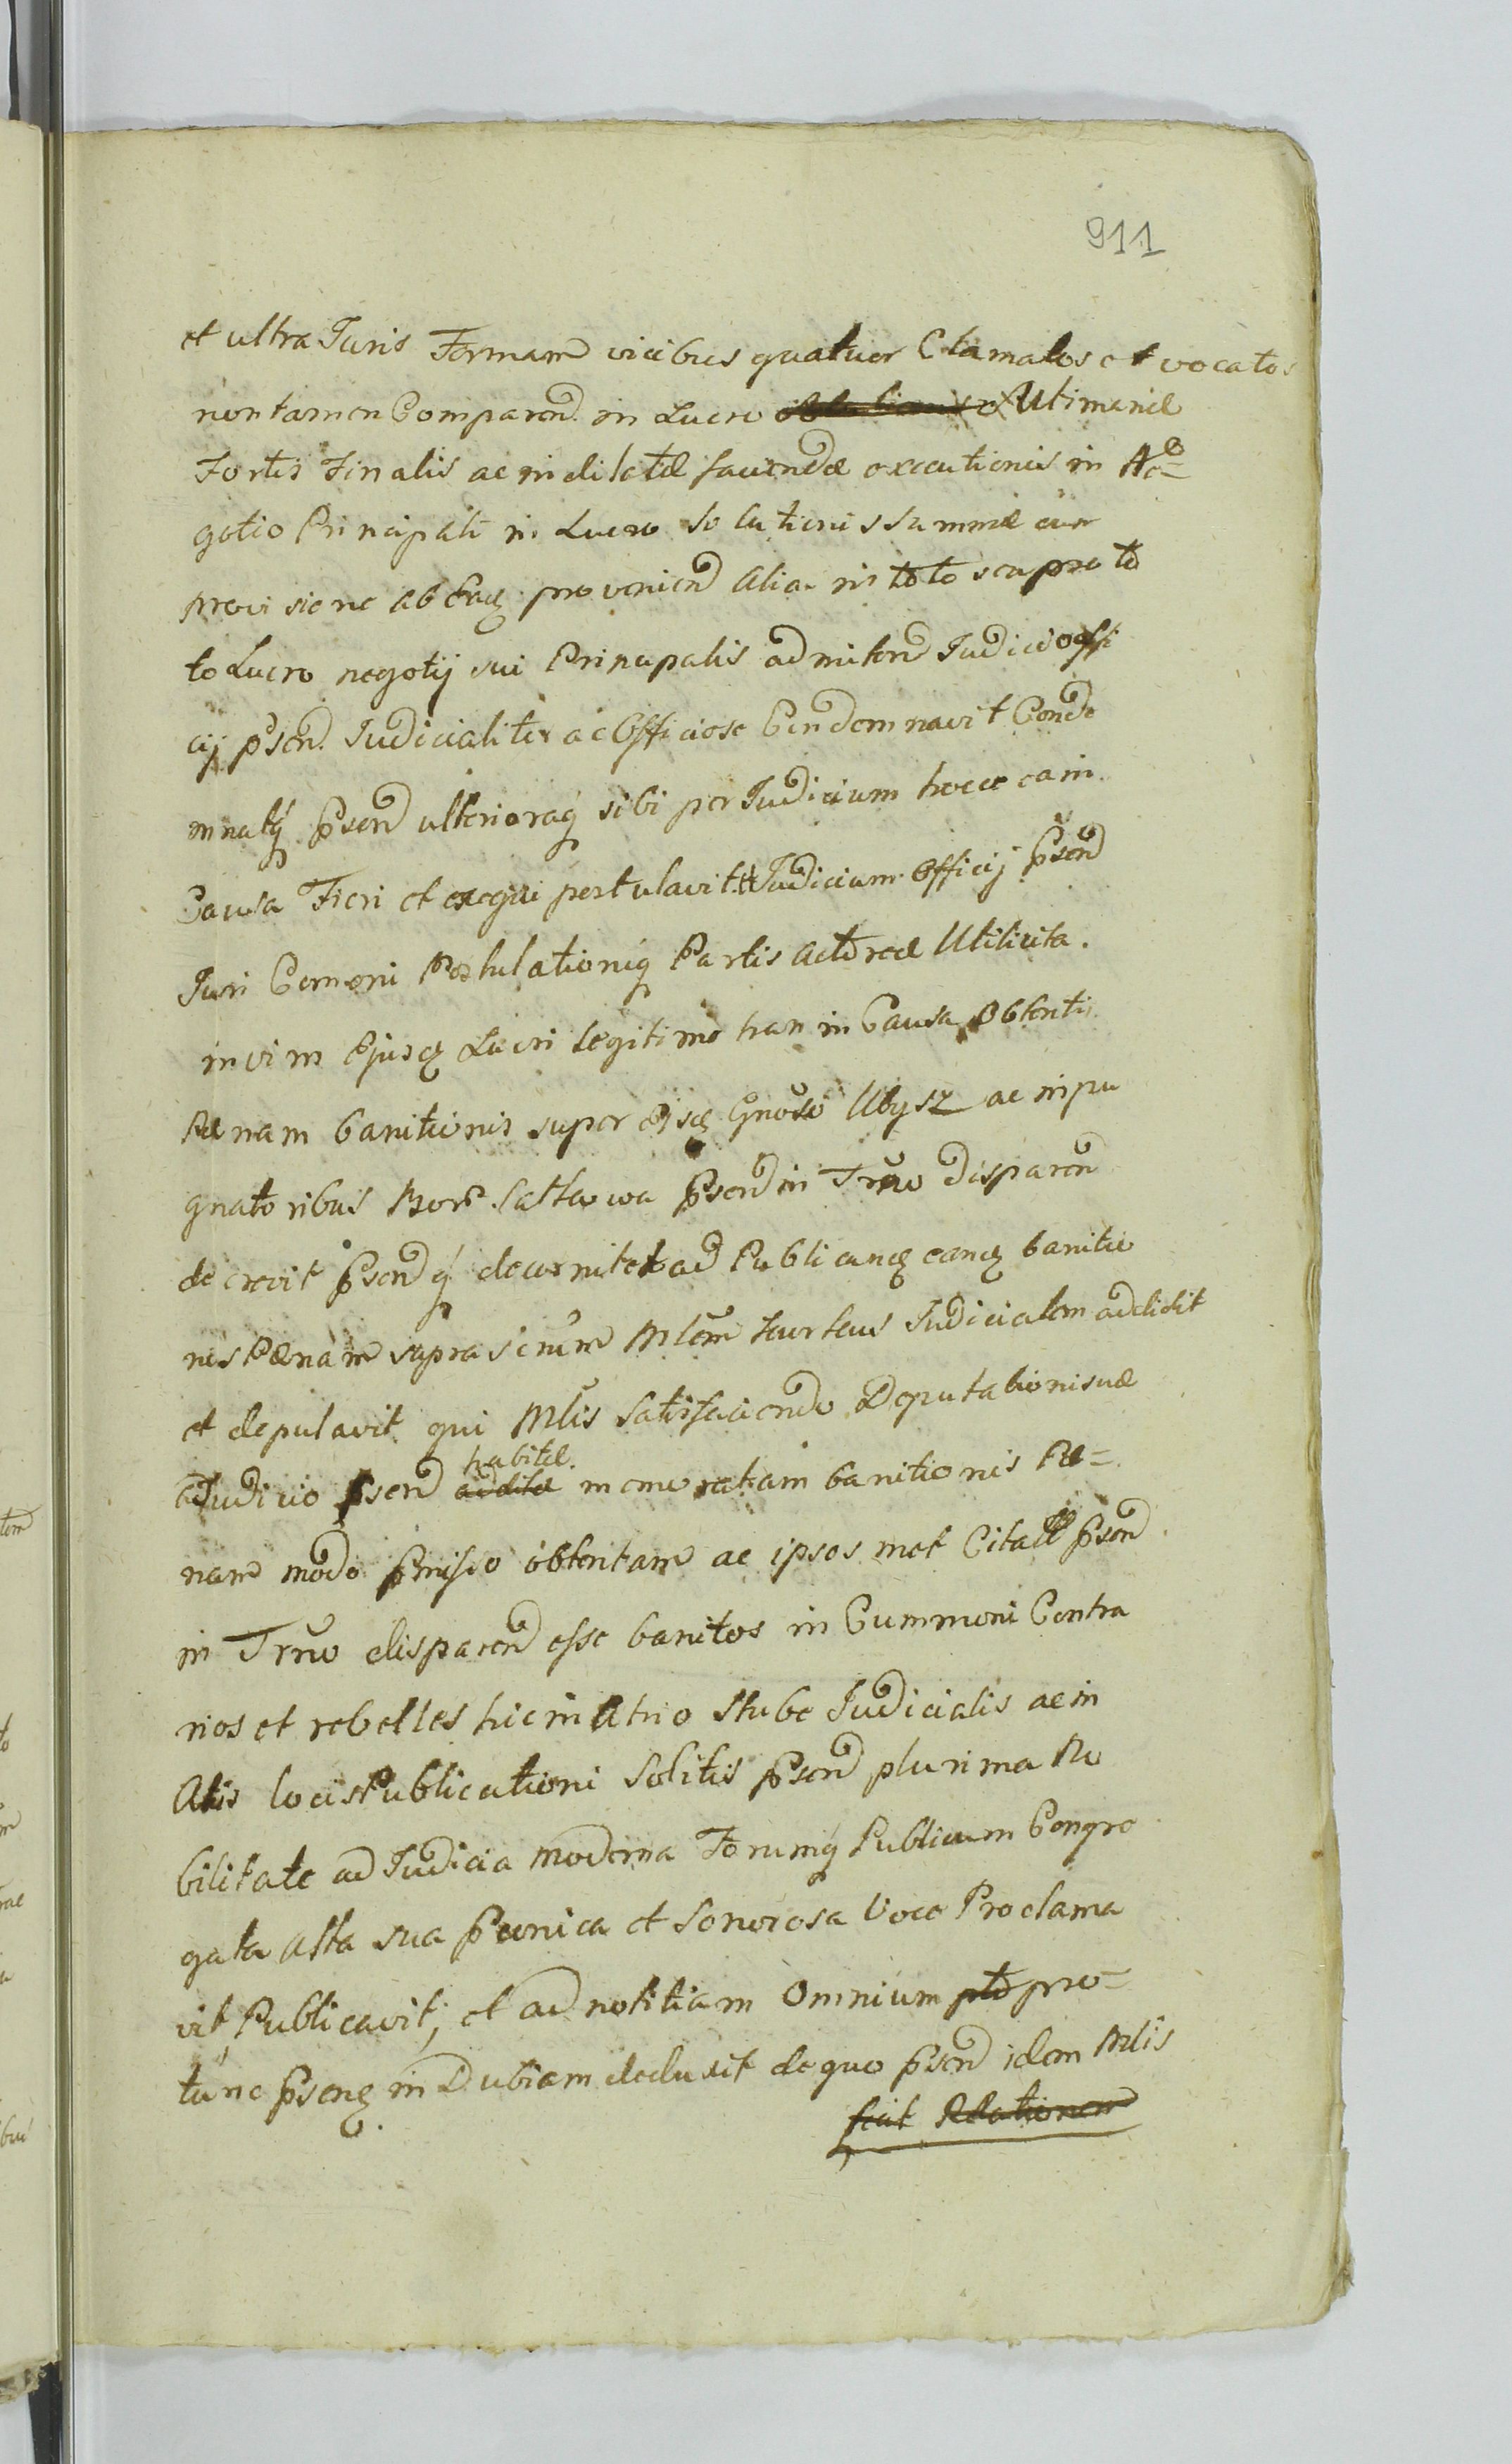 911
et ultra Juris Formam vicibus quatuor Clamatos et vocatos
non tamen Comparend. in Lucro Ultimariæ
Fortis Finalis ac indilatæ faciendæ executionis in Ne=
gotio Principali in Lucro Solutionis summæ cum
provisione ab Eaq. provenien alia in toto seu pro to
to Lucro negotij sui Principalis admitten Judicio offi
cij psen. Judicialiter ac Officiose Condemnavit Conde
mnatq psen ulterioraq sibi per Judicium hocce ea in
Causa Fieri et exequi postulavit. Judicium Officij psen
Juri Comoni Postulationiq Partis Actoreæ Utilita.
in vim Ejusq Lucri legitime hac in Causa Obtenti
Pænam banitionis super Ejsq Gnoso Ubysz ac inpu
gnatoribus Bonr. Lastawa psen in Trno disparen
decrevit psenq decernit et ad Publicanq eanq banitio
nis Pænam suprascrum Mlem huiusus Judicialem addidit
et deputavit qui Mlis Satisfaciendo Deputationi suæ
a Judicio psen additæ habitæ memoratam banitionis Pæ=
nam modo pmisso obtentam ac ipsos met Citatt psen
in Trno disparen esse banitos in Cummoni Contra
rios et rebelles hic in Atrio Stube Judicialis ac in
Aliis locis Publicationi Solitis psen plurima No
bilitate ad Judicia moderna Forumq Publicum Congre
gata Alta sua Peonica et Sonorosa Voce Proclama
vit Publicavit, et ad notitiam Omnium pto pro=
tunc psenq in Dubiam deduxit de quo psen idem Mlis
fecit Relationem